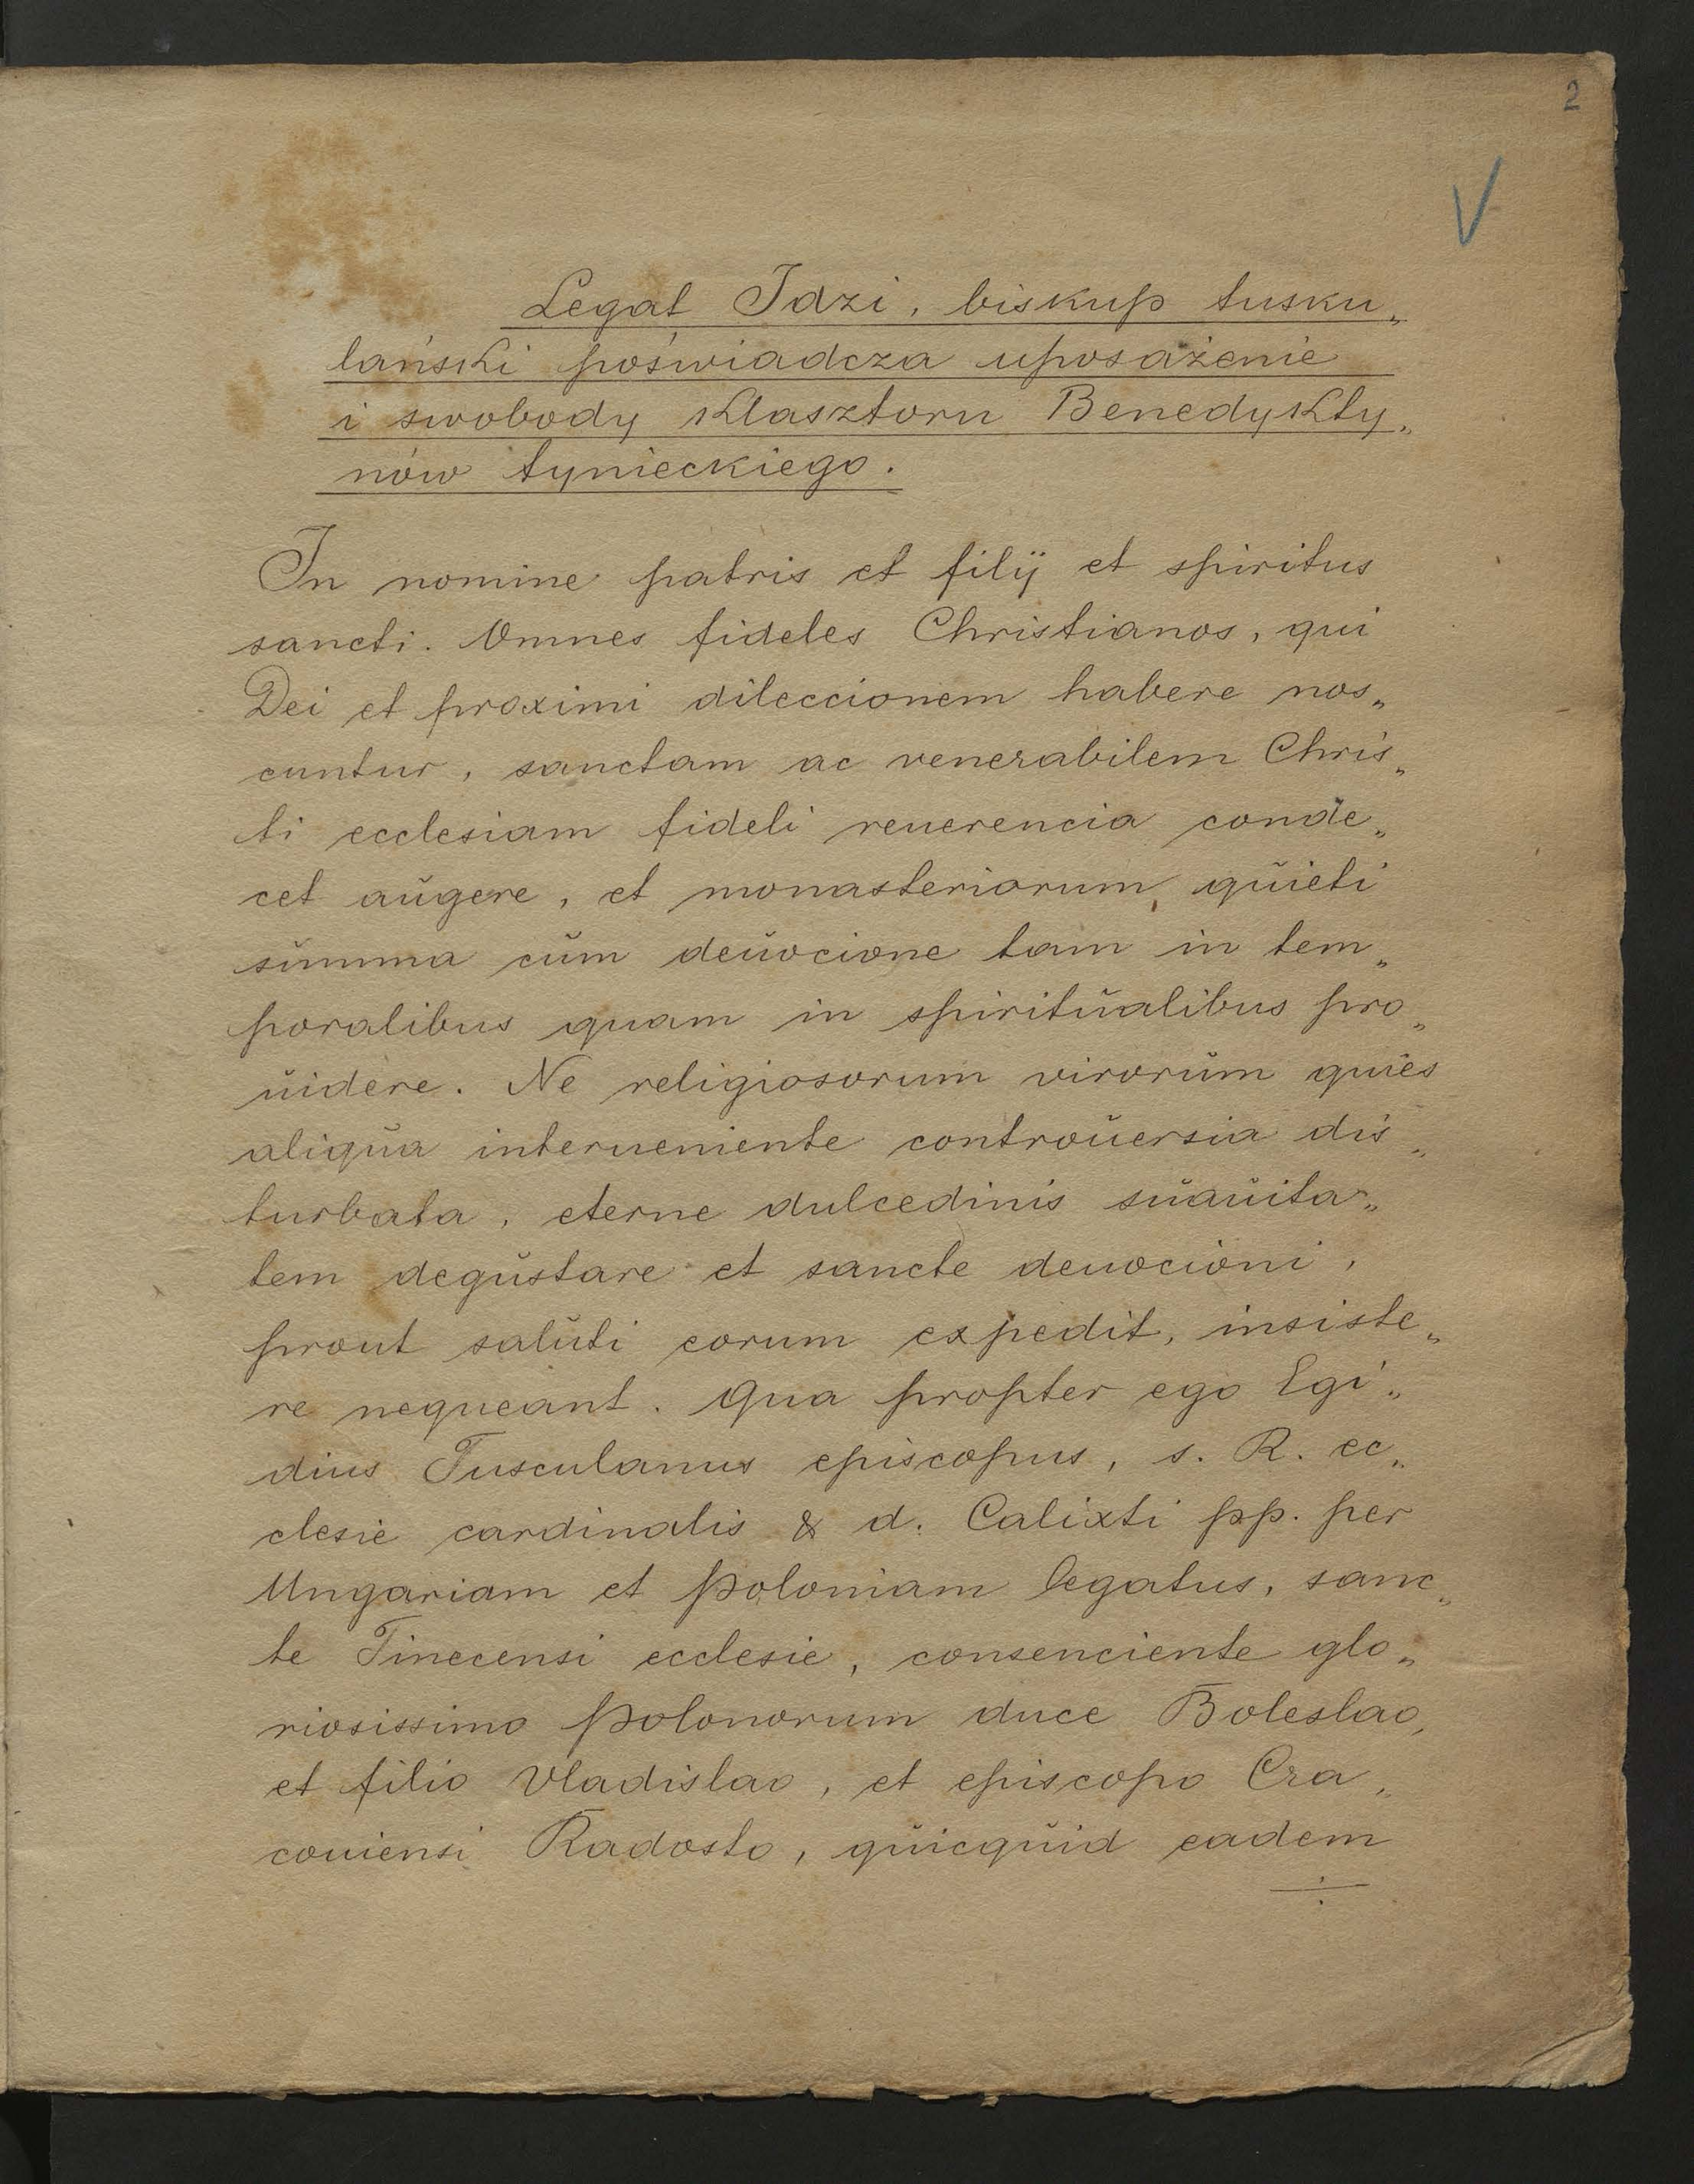 2
V
Legat Idzi, biskup tusku„
lański poświadcza uposażenie
i swobody klasztoru Benedykty„
nów tynieckiego.
In nomine patris et filij et spiritus
sancti. Omnes fideles Christianos, qui
Dei et proximi dileccionem habere nos„
cuntur, sanctam ac venerabilem Chris„
ti ecclesiam fideli reuerencia conde„
cet aŭgere, et monasteriorum qŭieti
sŭmma cŭm deŭocione tam in tem„
poralibus quam in spiritŭalibus pro„
ŭidere. Ne religiosorum virorŭm quies
aliqŭa interueniente controŭersia dis„
turbata, eterne dulcedinis sŭaŭita„
tem degŭstare et sancte deuocioni,
prout salŭti eorum expedit, insiste„
re nequeant. Qua propter ego Egi„
dius Tusculanus episcopus, s. R. ec„
clesie cardinalis & d. Calixti pp. per
Ungariam et Poloniam legatus, sanc„
te Tinecensi ecclesie, consenciente glo„
riosissimo Polonorum duce Boleslao,
et filio Vladislao, et episcopo Cra„
couiensi Radosto, qŭicqŭid eadem
÷